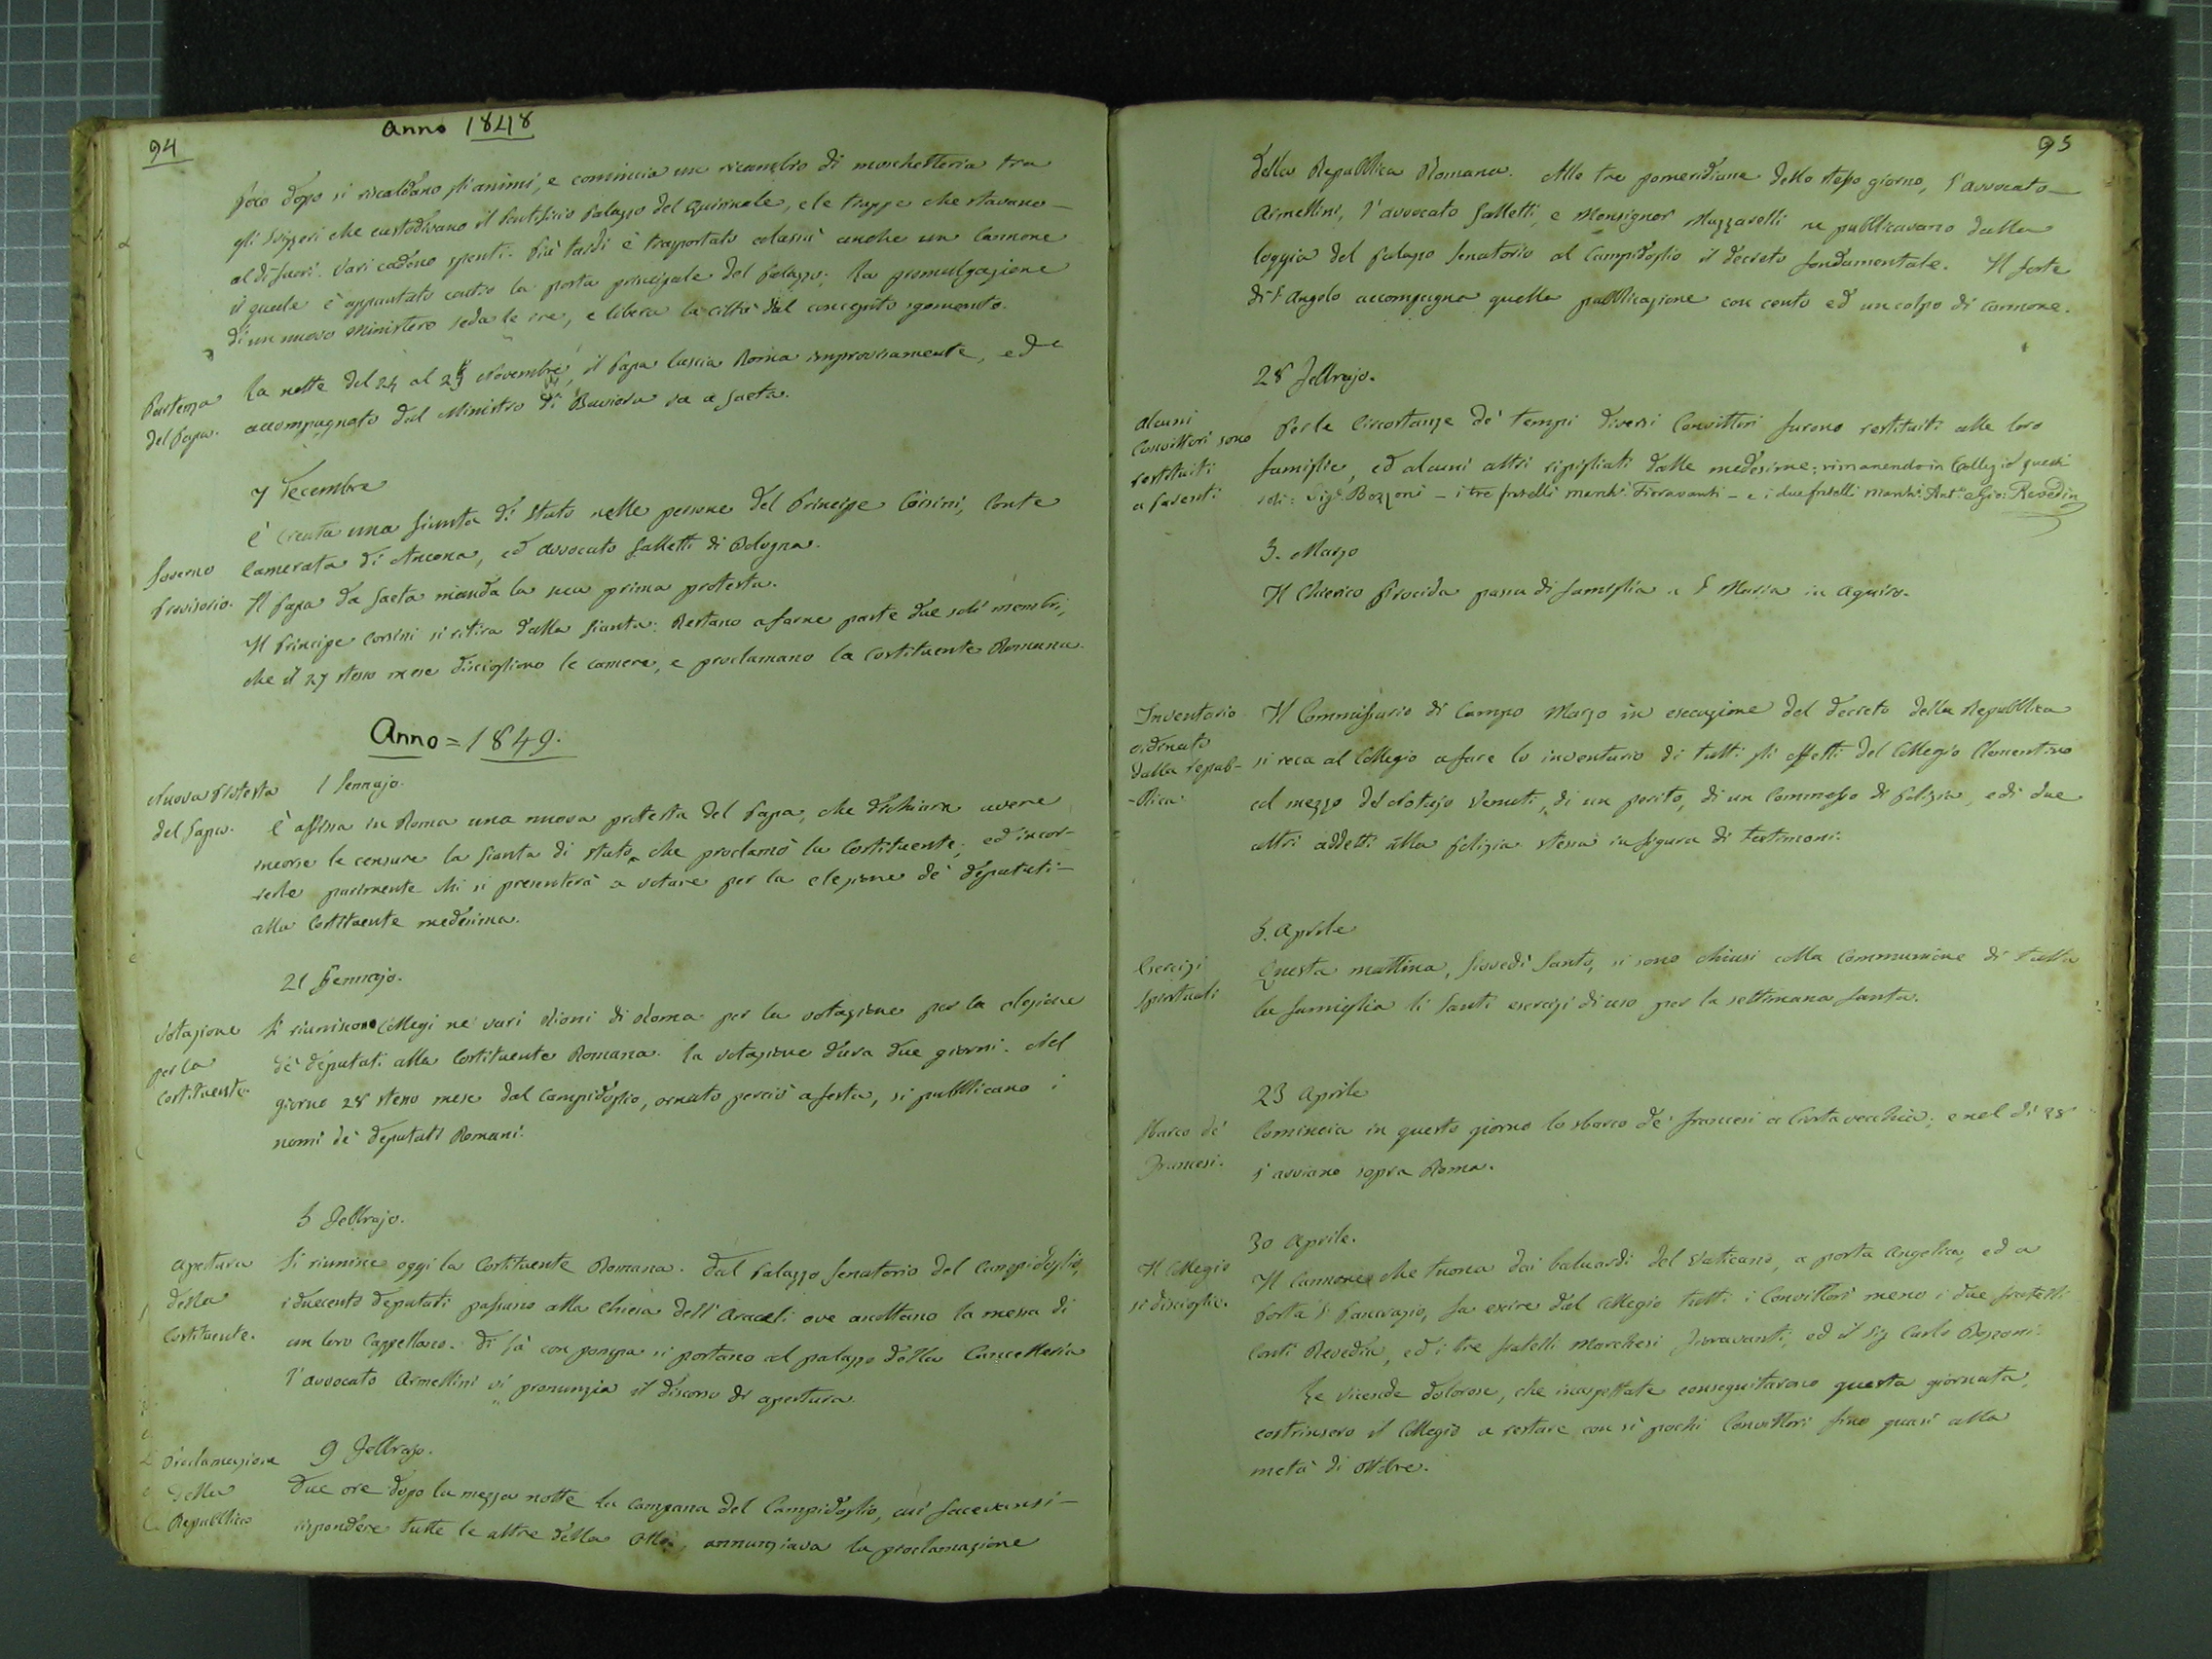 94
Anno 1848
Poco dopo si riscaldano gli animi, e comincia un ricambio di moschetteria tra
gli Svizzeri che custodivano il Pontificio Palazzo del Quirinale, e le truppe che stavano
al di fuori. Vari cadono spenti. Più tardi è trasportato colassù anche un Cannone
il quale è appuntato contro la porta principale del Palazzo. La promulgazione
di un nuovo Ministero seda le ire, e libera la città dal concepito sgomento.
Partenza
del Papa.
La notte del 24 al 25 Novembre, il Papa lascia Roma improvvisamente, ed è
accompagnato dal Ministro di Baviera va a Gaeta.
7 Decembre
Governo
Provisorio.
È creata una Giunta di Stato nelle persone del Principe Corsini, Conte
Camerata di Ancona, ed avvocato Galletti di Bologna.
Il Papa da Gaeta manda la sua prima protesta.
Il Principe Corsini si ritira dalla Giunta: Restano a farne parte due soli membri,
che il 27 stesso mese disciogliono le camere, e proclamano la Costituente Romana.
Anno = 1849.
Nuova Protesta
del Papa.
1 Gennajo.
È affissa in Roma una nuova protesta del Papa, che dichiara avere
incorse le censure la Giunta di Stato che proclamò la Costituente; ed incor-
rerle parimente chi si presenterà a votare per la elezione de' deputati
alla Costituente medesima.
21 Gennajo.
Votazione
per la
Costituente.
Si riuniscono Collegi ne' vari Rioni di Roma per la votazione per la elezione
de' deputati alla Costituente Romana. La votazione dura due giorni. Nel
giorno 28 stesso mese dal Campidoglio, ornato perciò a festa, si pubblicano i
nomi de' deputati Romani.
5 Febbrajo.
Apertura
della
Costituente.
Si riunisce oggi la Costituente Romana. Dal Palazzo Senatorio del Campidoglio,
i duecento deputati passano alla Chiesa dell'Araceli ove ascoltano la messa di
un loro Cappellano. Di là con pompa si portano al palazzo della Cancelleria
l'avvocato Armellini vi pronunzia il discorso di apertura.
Proclamazione
della
Repubblica
9 Febbrajo.
Due ore dopo la mezza notte la campana del Campidoglio, cui facevansi
rispondere tutte le altre della città, annunziava la proclamazione
95
della Repubblica Romana. Alle tre pomeridiane dello stesso giorno, l'avvocato
Armellini, l'avvocato Galletti, e Monsignor Muzzarelli ne pubblicavano dalla
loggia del Palazzo Senatorio al Campidoglio il decreto fondamentale. Il forte
di S. Angelo accompagna quella pubblicazione con cento ed un colpo di cannone.
28 Febbrajo.
Alcuni
Convittori sono
restituiti
a Parenti
Per le Circostanze de' tempi diversi Convittori furono restituiti alle loro
famiglie, ed alcuni altri ripigliati dalle medesime; rimanendo in Collegio questi
soli: Sig.r Bozzoni - i tre fratelli march.i Fioravanti - e i due fratelli march.i Ant.o e Gio: Revedin
3. Marzo
Il Chierico Procida passa di famiglia a S Maria in Aquiro.
Inventario
ordinato
dalla repub-
-blica.
Il Commissario di Campo Marzo in esecuzione del decreto della Repubblica
si reca al Collegio a fare lo inventario di tutti gli effetti del Collegio Clementino
col mezzo del Notajo Venuti, di un perito, di un Commesso di Polizia, e di due
altri addetti alla Polizia stessa in figura di testimoni.
5. Aprile
Esercizi
Spirituali
Questa mattina, Giovedì Santo, si sono chiusi colla Communione di tutta
la famiglia li Santi esercizi di uso per la settimana santa.
23 Aprile
Sbarco de'
Francesi.
Comincia in questo giorno lo sbarco de' francesi a Civitavecchia; e nel dì 28
s'avviano sopra Roma.
30 Aprile.
Il Collegio
si discioglie.
Il Cannone che tuona dai baluardi del Vaticano, a porta Angelica, ed a
Porta S Pancrazio, fa escire dal Collegio tutti i Convittori meno i due fratelli
Conti Revedin, ed i tre fratelli Marchesi Fioravanti, ed il Sig Carlo Bozzoni.
Le vicende dolorose, che inaspettate conseguitarono questa giornata,
costrinsero il Collegio a restare con sì pochi Convittori fino quasi alla
metà di ottobre.